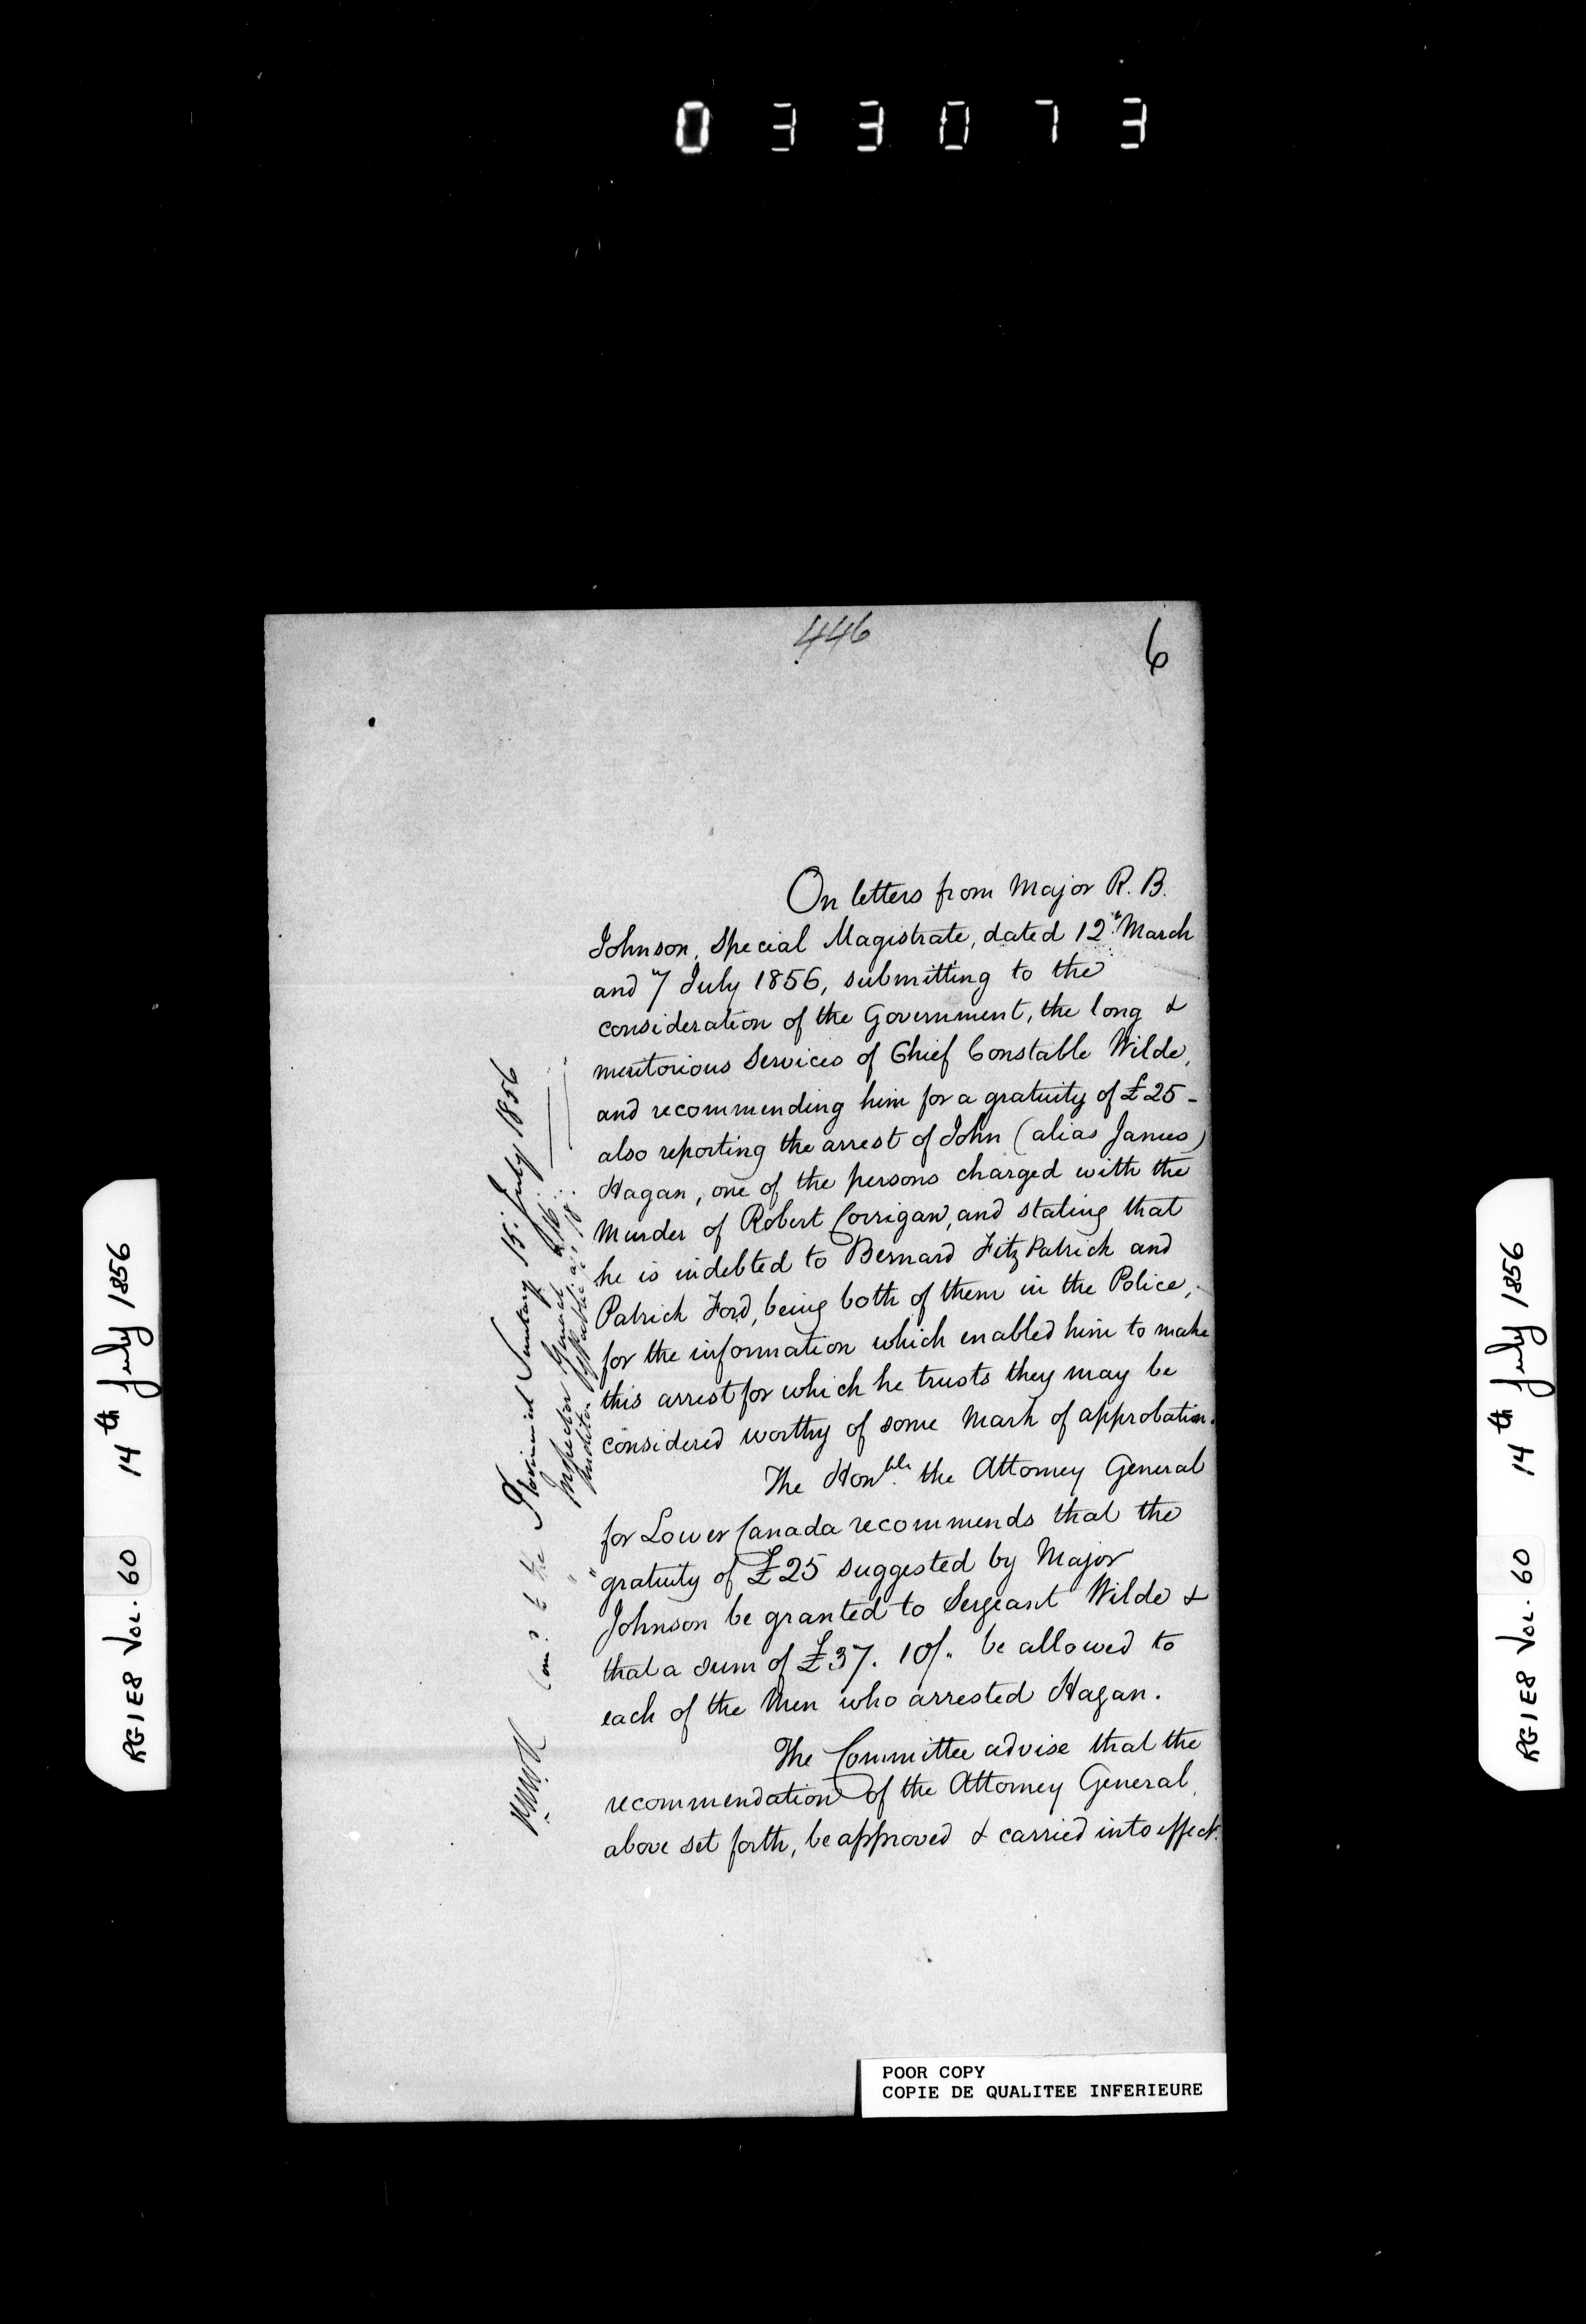 033073
446
6
On letters from Major R. B.
Johnson, Special Magistrate, dated 12th March
and 7 July 1856, submitting to the
consideration of the Government, the long &
meritorious Services of Chief Constable Wilde,
and recommending him for a gratuity of £25 -
also reporting the arrest of John (alias James)
Hagan, one of the persons charged with the
Murder of Robert Corrigan, and stating that
he is indebted to Bernard FitzPatrick and
Patrick Ford, being both of them in the Police,
for the information which enabled him to make
this arrest for which he trusts they may be
considered worthy of some Mark of approbation.
The Honble. the Attorney General
for Lower Canada recommends that the
gratuity of £25 suggested by Major
Johnson be granted to Sergeant Wilde &
that a sum of £37. 10/. be allowed to
each of the Men who arrested Hagan.
The Committee advise that the
recommendation of the Attorney General,
above set forth, be approved & carried into effect.
to the Provincial Secretary 15. July 1856
" " Inspector General " 16.
Auditor 18.
POOR COPY
COPIE DE QUALITEE INFERIEURE
RG1E8 VOL. 60 14th July 1856
RG1E8 VOL. 60 14th July 1856